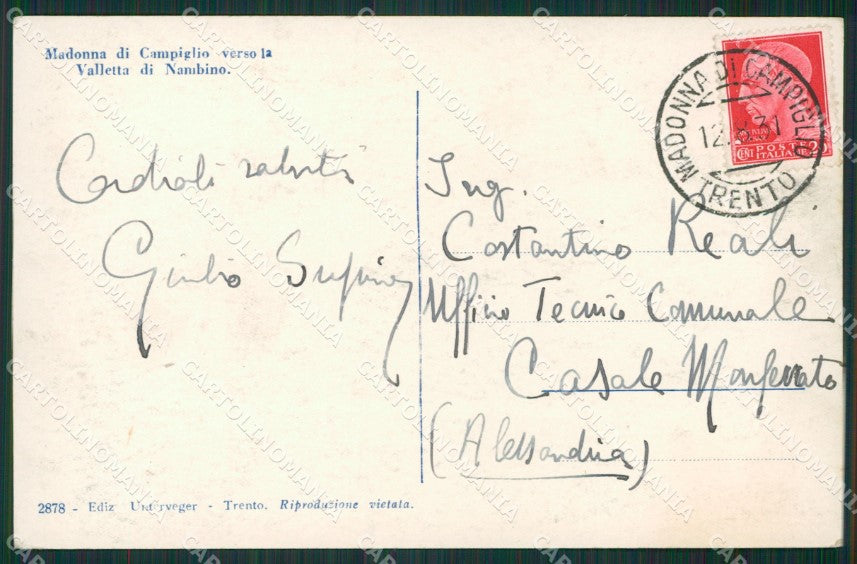 Madonna di Campiglio verso la
Valletta di Nambino.
Cordiali saluti
Giulio
Ing.
Costantino Reali
Ufficio Tecnico Comunale
Casale Monferrato
(Alessandria)
MADONNA DI CAMPIGLIO
TRENTO
CENT 20
POSTE
ITALIANE
2878 - Ediz Unterveger - Trento. Riproduzione vietata.
CARTOLINOMANIA